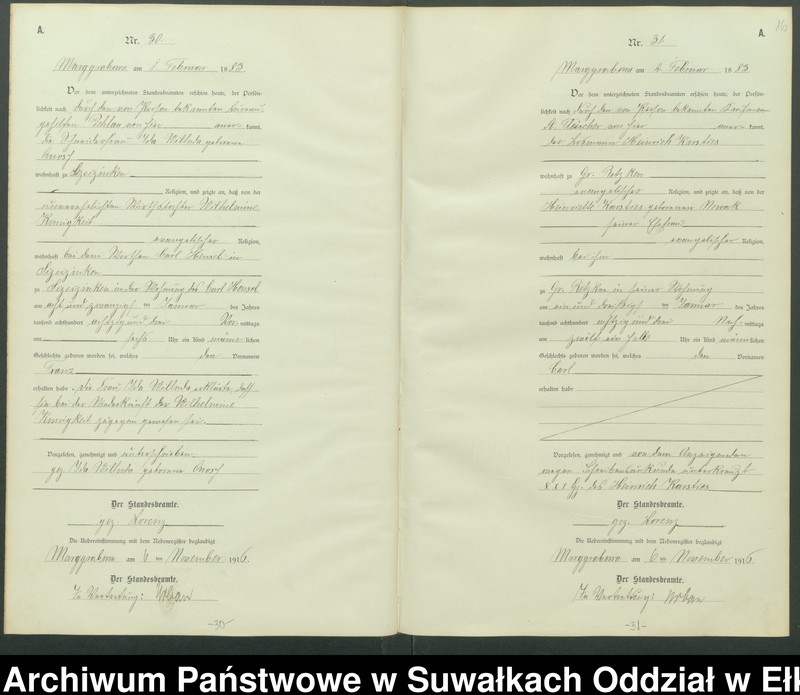 A.
Nr. 30.
Marggrabowa am 1. Februar 1883
Vor dem unterzeichneten Standesbeamten erschien heute, der Persön-
lichkeit nach durch den von Person bekannten
von hier aner- kannt,
die Ida Willuda geborene
wohnhaft zu
Religion, und zeigte an, daß von der
unverehelichten Wirthstochter Wilhelmine
evangelischer Religion,
wohnhaft bei dem Wirthen Carl Hensel in
zu in der Wohnung des Carl Hensel
am acht und zwanzigsten Januar des Jahres
tausend achthundert achtzig und drei Vor- mittags
um sechs Uhr ein Kind männ- lichen
Geschlechts geboren worden sei, welches den Vornamen
Franz
erhalten habe. Die Frau Ida Willuda erklärte, daß
sie bei der Niederkunft der Wilhelmine
zugegen gewesen sei.
Vorgelesen, genehmigt und unterschrieben
gez. Ida Willuda geborene
Der Standesbeamte.
gez. Lorenz
Die Uebereinstimmung mit dem Nebenregister beglaubigt
Marggrabowa am 6 ten November 1916.
Der Standesbeamte.
In Vertretung: Urban
-30-
A.
Nr. 31.
Marggrabowa am 2. Februar 1883
Vor dem unterzeichneten Standesbeamten erschien heute, der Persön-
lichkeit nach durch den von Person bekannten
A. von hier aner- kannt,
der Heinrich Karsties
wohnhaft zu Gr. Retzken
evangelischer Religion, und zeigte an, daß von der
Henriette Karsties geborenen Nowak
seiner Ehefrau
evangelischer Religion,
wohnhaft bei ihm
zu Gr. Retzken in seiner Wohnung
am ein und dreißigsten Januar des Jahres
tausend achthundert achtzig und drei Nach- mittags
um zwölf ein halb Uhr ein Kind männ- lichen
Geschlechts geboren worden sei, welches den Vornamen
Carl
erhalten habe
Vorgelesen, genehmigt und von dem Anzeigenden
wegen Schreibensunkunde unterkreuzt
x x x des Heinrich Karsties
Der Standesbeamte.
gez. Lorenz
Die Uebereinstimmung mit dem Nebenregister beglaubigt
Marggrabowa am 6 ten November 1916
Der Standesbeamte.
In Vertretung: Urban
-31-
Archiwum Państwowe w Suwałkach Oddział w Eł